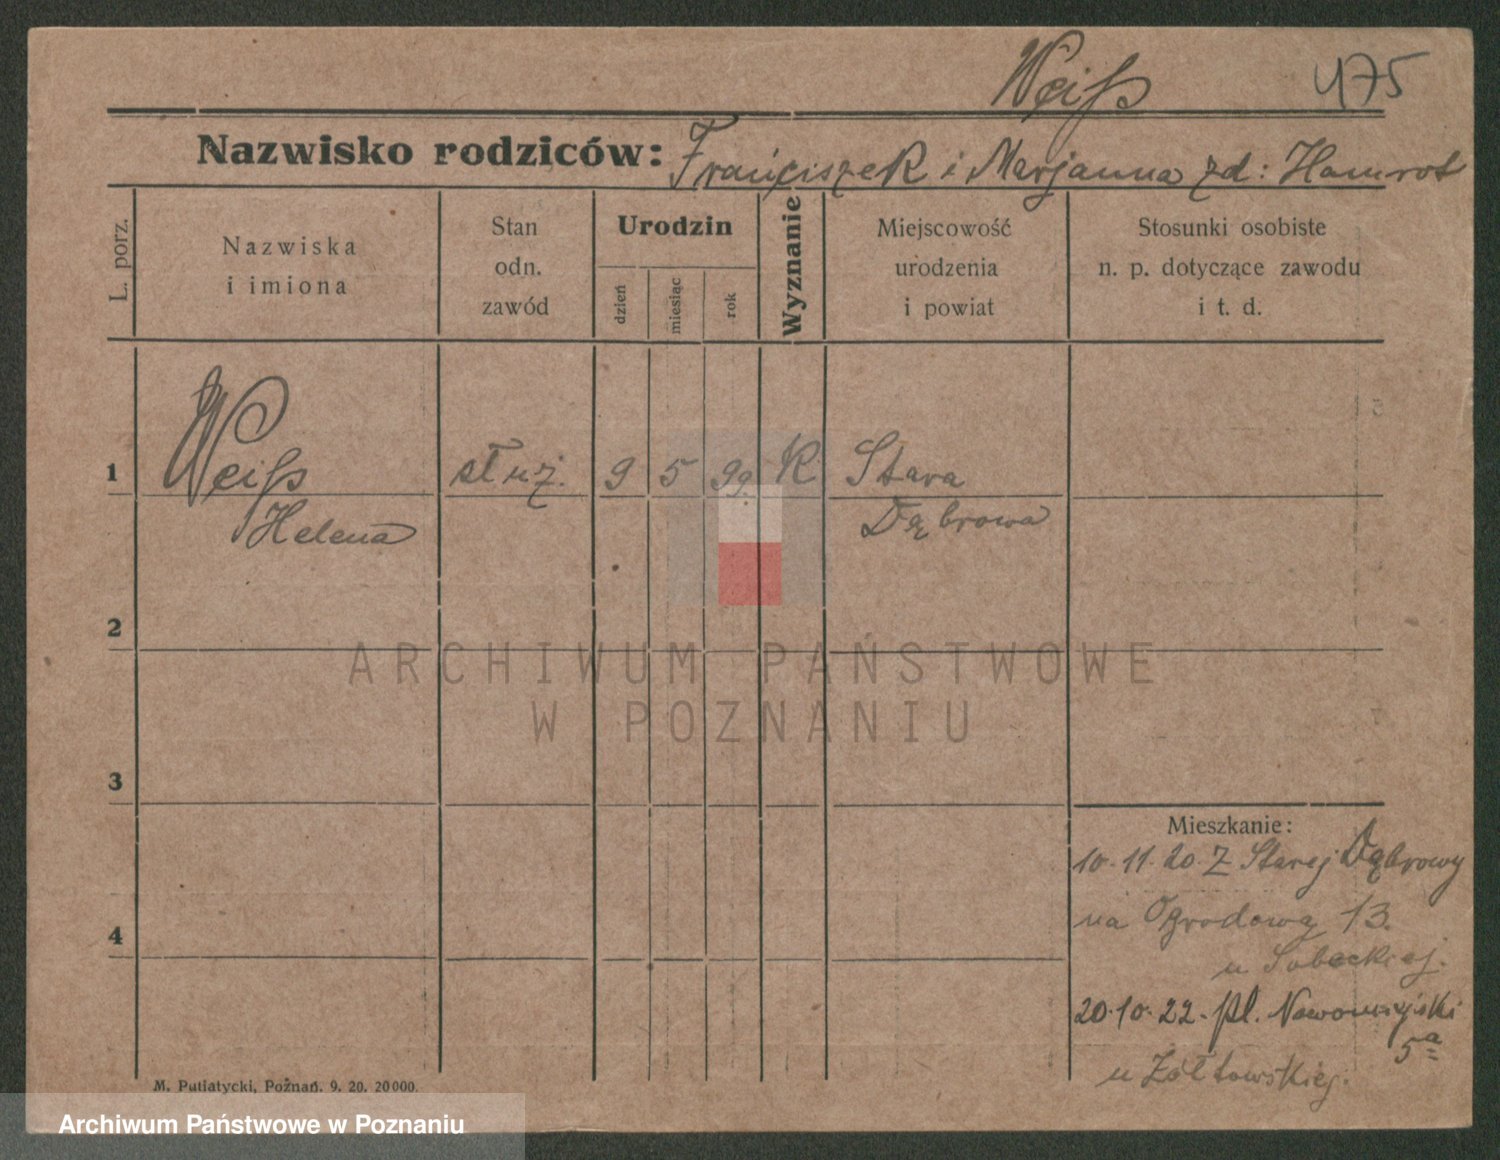 Weiß 475
Nazwisko rodziców: Franciszek i Marjanna zd: Hamrot
L. porz.
Nazwiska
i imiona
Stan
odn.
zawód
Urodzin
dzień
miesiąc
rok
Wyznanie
Miejscowość
urodzenia
i powiat
Stosunki osobiste
n. p. dotyczące zawodu
i t. d.
1 Weiß służ. 9 5 99. K Stara
Helena Dąbrowa
2
ARCHIWUM PAŃSTWOWE
W POZNANIU
3
Mieszkanie:
10.11.20 Z Starej Dąbrowy
na Ogrodową 13.
4
u Sobeckiej.
20.10.22. pl. Nowomiejski
5a
u Żółtowskiej.
M. Putiatycki, Poznań. 9. 20. 20000.
Archiwum Państwowe w Poznaniu